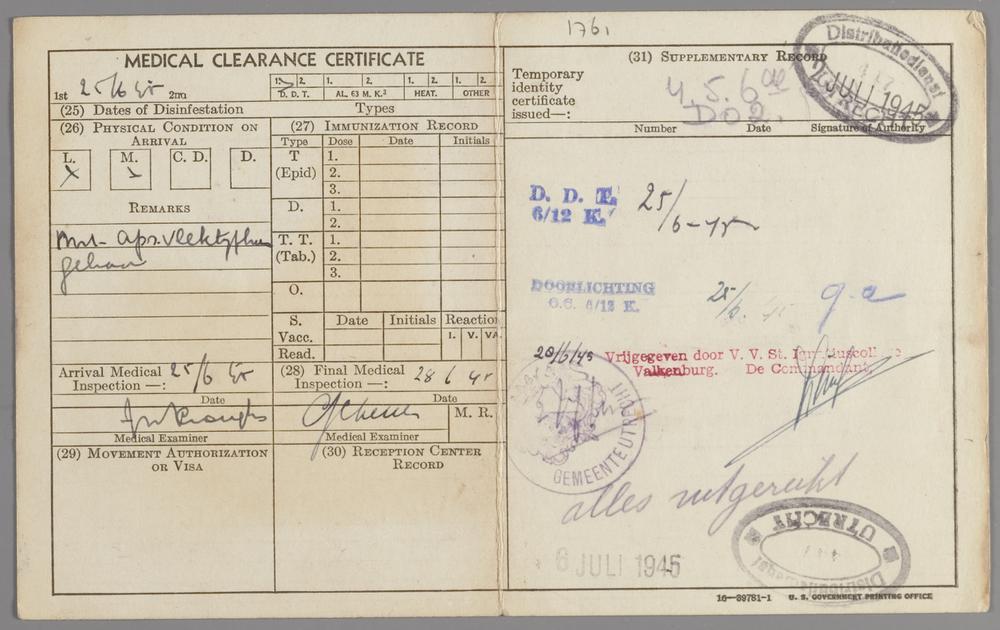 1761
MEDICAL CLEARANCE CERTIFICATE
1st 25/6 45 2nd
1. 2. 1. 2. 1. 2. 1. 2.
D. D. T. AL. 63 M. K.² HEAT. OTHER
(25) Dates of Disinfestation Types
(26) PHYSICAL CONDITION ON ARRIVAL
L. M. C. D. D.
REMARKS
vlektyphus
gehad
(27) IMMUNIZATION RECORD
Type Dose Date Initials
T (Epid) 1.
2.
3.
D. 1.
2.
T. T. (Tab.) 1.
2.
3.
O.
S. Vacc. Date Initials Reaction
I. V. VA
Read.
Arrival Medical Inspection —: 25/6 45
Date
Medical Examiner
(28) Final Medical Inspection —: 28 6 45
Date
M. R.
Medical Examiner
(29) MOVEMENT AUTHORIZATION OR VISA
(30) RECEPTION CENTER RECORD
(31) SUPPLEMENTARY RECORD
Temporary identity certificate issued—:
Number Date Signature of Authority
Distributiedienst
JULI 1945
UTRECHT
D. D. T. 25/6-45
6/12 K.
DOORLICHTING 25/6 45 g.a
O.G. 6/12 K.
28/6/45 Vrijgegeven door V. V. St. Ignatiuscollege
Valkenburg. De Commandant,
GEMEENTE UTRECHT
alles uitgereikt
6 JULI 1945
UTRECHT
Distributiedienst
16—39781-1 U. S. GOVERNMENT PRINTING OFFICE